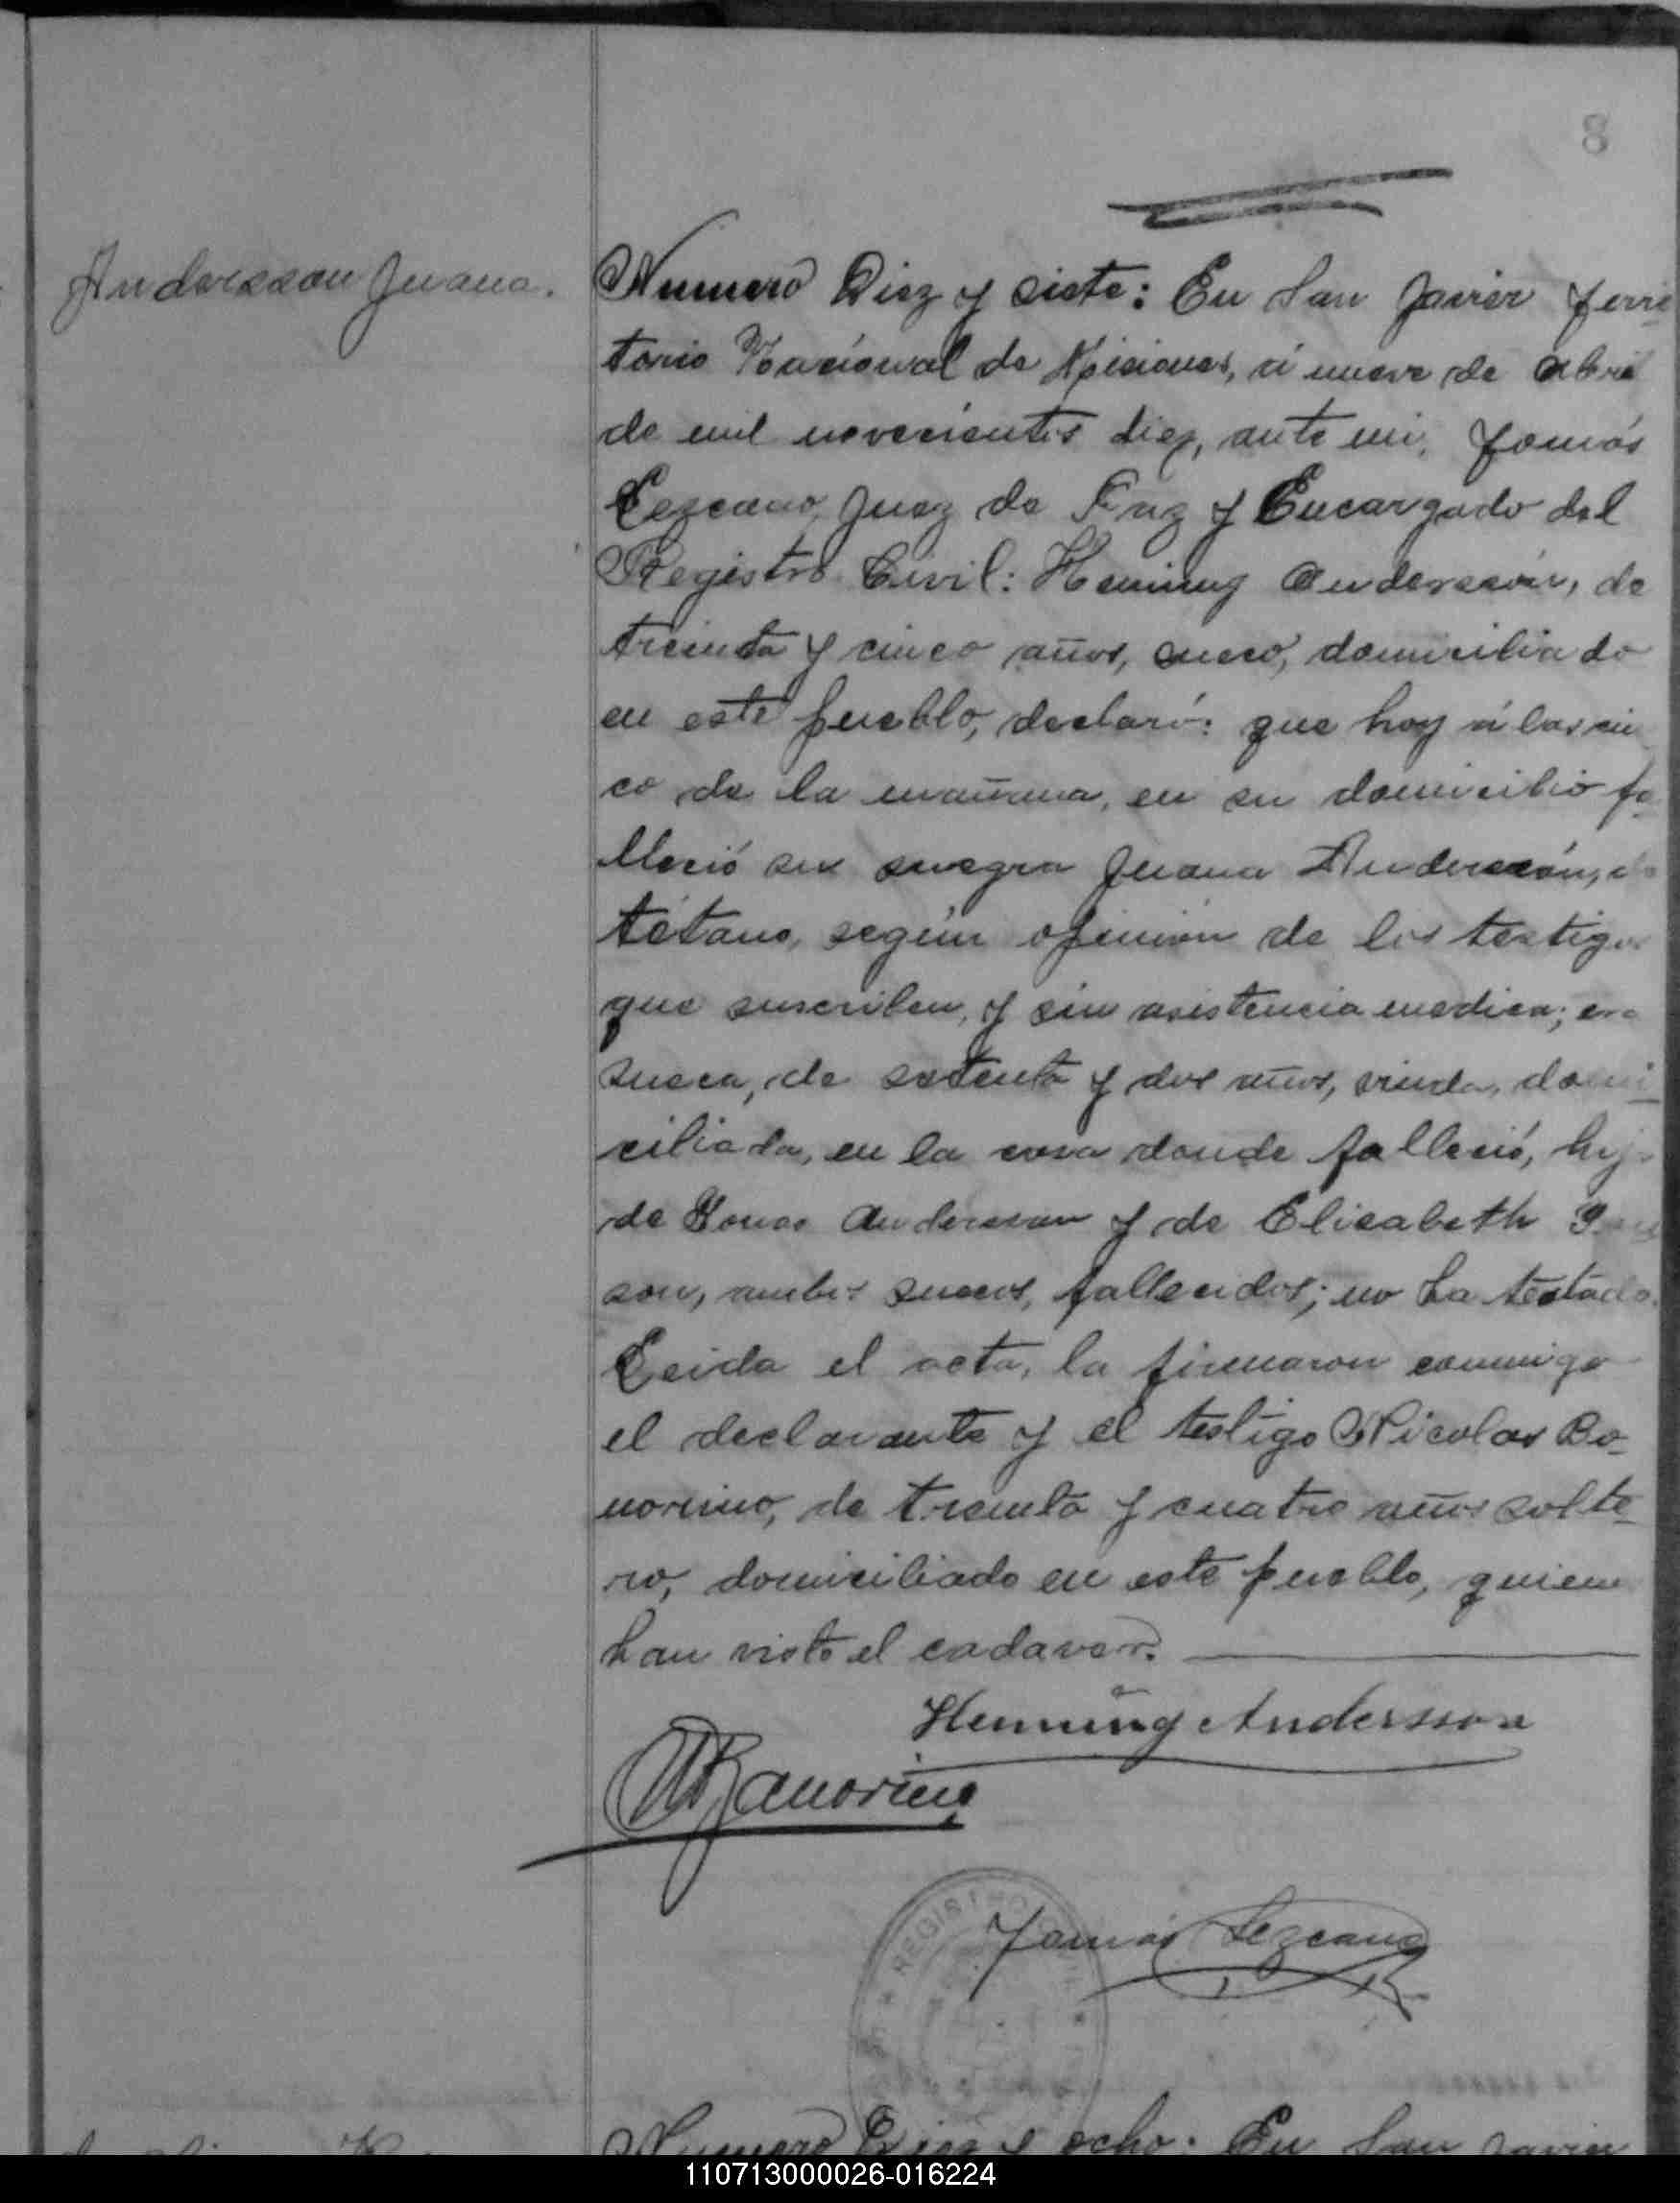 8
Andersson Juana.
Numero Diez y siete: En San Javier Terri-
torio Nacional de Misiones, á nueve de Abril
de mil novecientos diez, ante mi, Tomás
Lezcano, Juez de Paz y Encargado del
Registro Civil: Henning Anderssón, de
treinta y cinco años, sueco, domiciliado
en este pueblo, declaró: que hoy á las cin-
co de la mañana, en su domicilio fa-
lleció su suegra Juana Anderssón, de
tétano, según opinión de los testigos
que suscriben, y sin asistencia medica; era
sueca, de setenta y dos años, viuda, domi-
ciliada, en la casa donde falleció, hija
de Jonas Andersson y de Elisabeth
son, ambos suecos, fallecidos; no ha testado.
Leida el acta, la firmaron conmigo
el declarante y el testigo Nicolas Bo-
norino, de treinta y cuatro años solte-
ro, domiciliado en este pueblo, quienes
han visto el cadaver.
Henning Andersson
NBonorino
REGISTRO CIVIL
Tomás Lezcano
Numero Diez y ocho: En San Javier
110713000026-016224